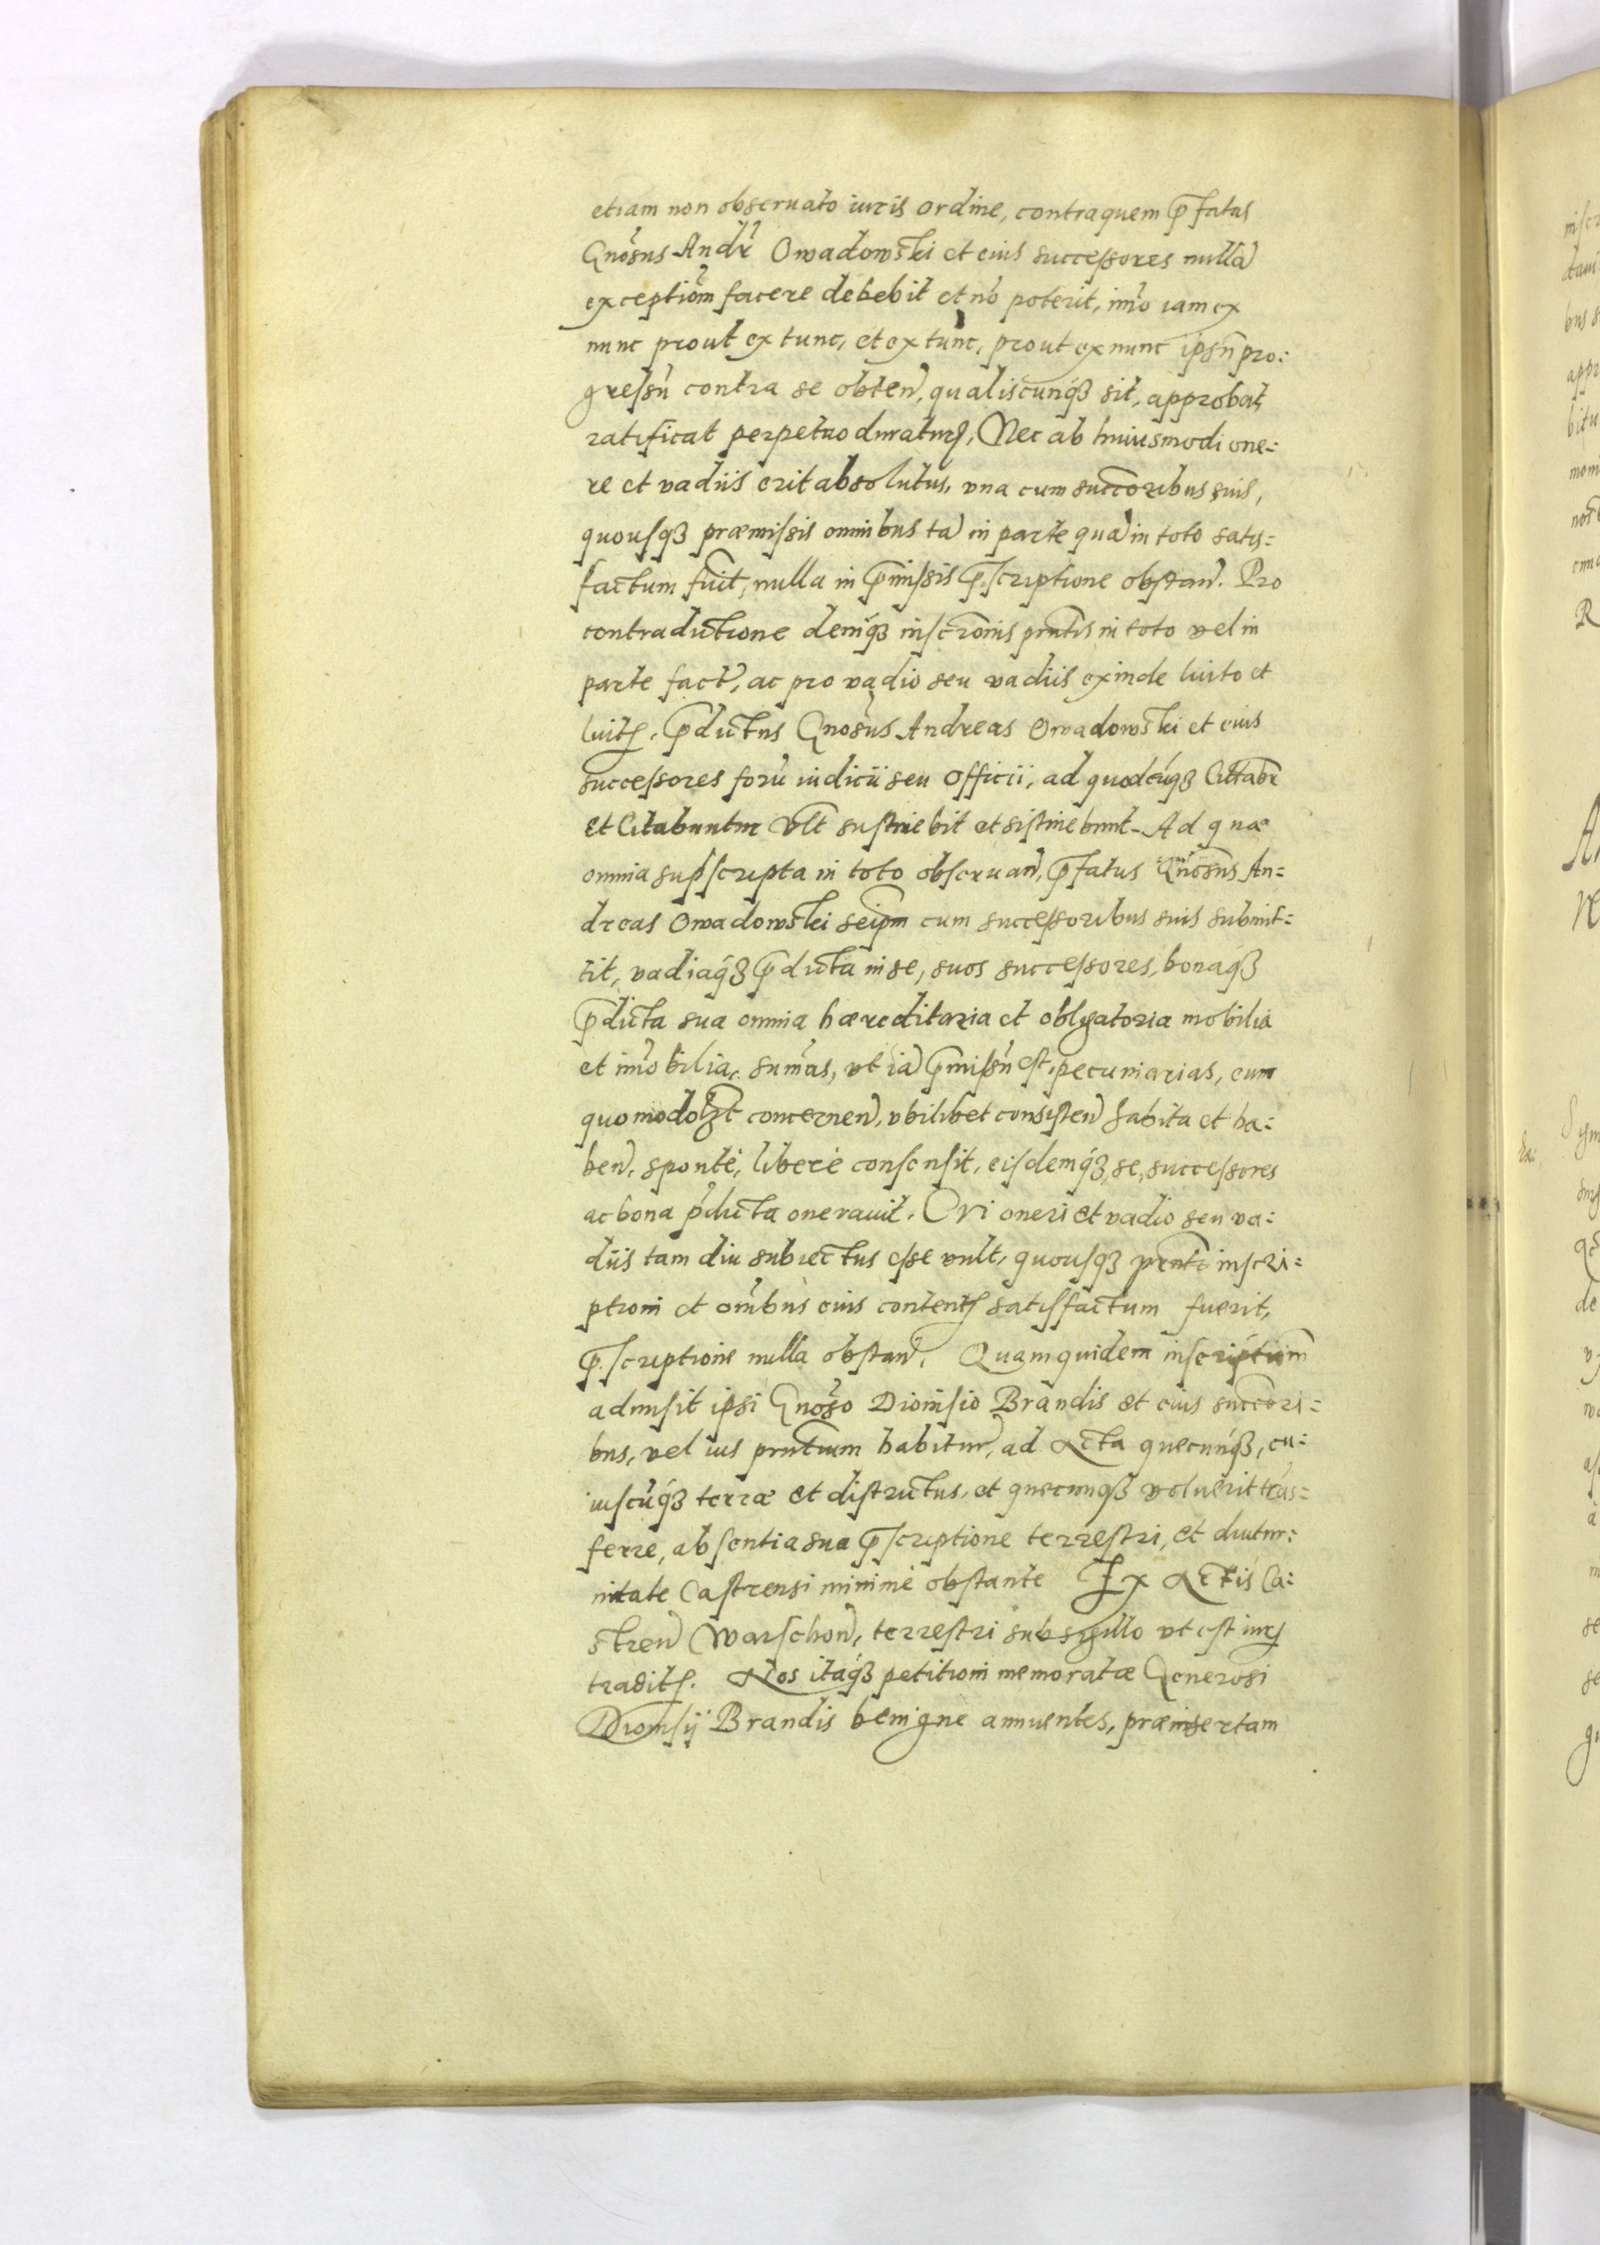 etiam non obseruato iuris ordine, contra quem p̄fatus
Gnōsus Andr̄ Owadowski et eius successores nullā
exceptiōm facere debebit et nō poterit, im̄o iam ex
nunc prout ex tunc, et ex tunc, prout ex nunc ipsū pro:
gressū contra se obten̄, qualiscunq́ꝫ sit, approbat,
ratificat perpetuo duraturꝭ, Nec ab huiusmodi one:
re et vadiis erit absolutus, vna cum succ̄oribus suis,
quousqꝫ præmissis omnibus tā in parte quā in toto satis=
factum fūit, nulla in p̄missis p̄scriptione obstan̄. Pro
contradictione deniq́ꝫ inscr̄onis pn̄tis in toto vel in
parte fact̄, ac pro vadio seu vadiis exinde luito et
luitꝭ. p̄dictus Gnōsus Andreas Owadowski et eius
successores forū iudicii seu officii, ad quodcúqꝫ Citabr̄
et Citabuntur vl̄t sustinebit et sistinebunt. Ad quæ
omnia sup̄scripta in toto obseruan̄, p̄fatus Gnōsus An=
dreas Owadowski seip̄m cum successoribus suis submit=
tit, vadiaq́ꝫ p̄dicta in se, suos successores, bonaq́ꝫ
p̄dicta sua omnia hæreditaria et obligatoria mobilia
et im̄obilia, sum̄as, vt iā p̄missū est, pecuniarias, eum
quomodolꝫt concernen̄, vbilibet consisten̄ habita et ha:
ben̄, sponté, liberé consensit, eisdemq́ꝫ, se, successores
ac bona p̄dicta onerauit. Cui oneri et vadio seu va:
diis tam diu subiectus esse vult, quousqꝫ pn̄ti inscri:
ptioni et om̄bus eius contentꝭ satisfactum fuerit,
p̄scriptione nulla obstan̄. Quamquidem inscriptiōm
admisit ipsi Gnōso Dionisio Brandis et eius succ̄ori=
bus, vel ius pn̄tium habitur̄, ad Acta quecunq́ꝫ, cu:
iuscúq́ꝫ terræ et districtus, et quecunqꝫ voluerit trás=
ferre, absentia sua p̄scriptione terrestri, et diutur:
nitate Castrensi minimé obstante Ex Actis Ca:
stren̄ Warschon̄, terrestri sub sigillo vt est iurꝭ
traditꝭ. Nos itaq́ꝫ petitioni memoratæ Generosi
Dionisij Brandis benigne annuentes, præinsertam